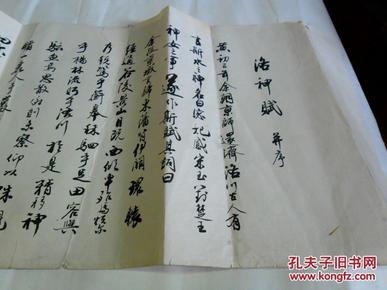 洛神賦 并序
黄初三年余朝京師還濟洛川古人有
言斯水之神名曰宓妃感宋玉對楚王
神女之事遂作斯賦其詞曰
余從京域言歸東藩背伊闕越轘轅
經通谷陵景山日既西傾車殆馬煩
乃税駕乎蘅皋秣駟乎芝田容與
乎楊林流眄乎洛川於是精移神
駭忽焉思散俯則未察仰以殊觀